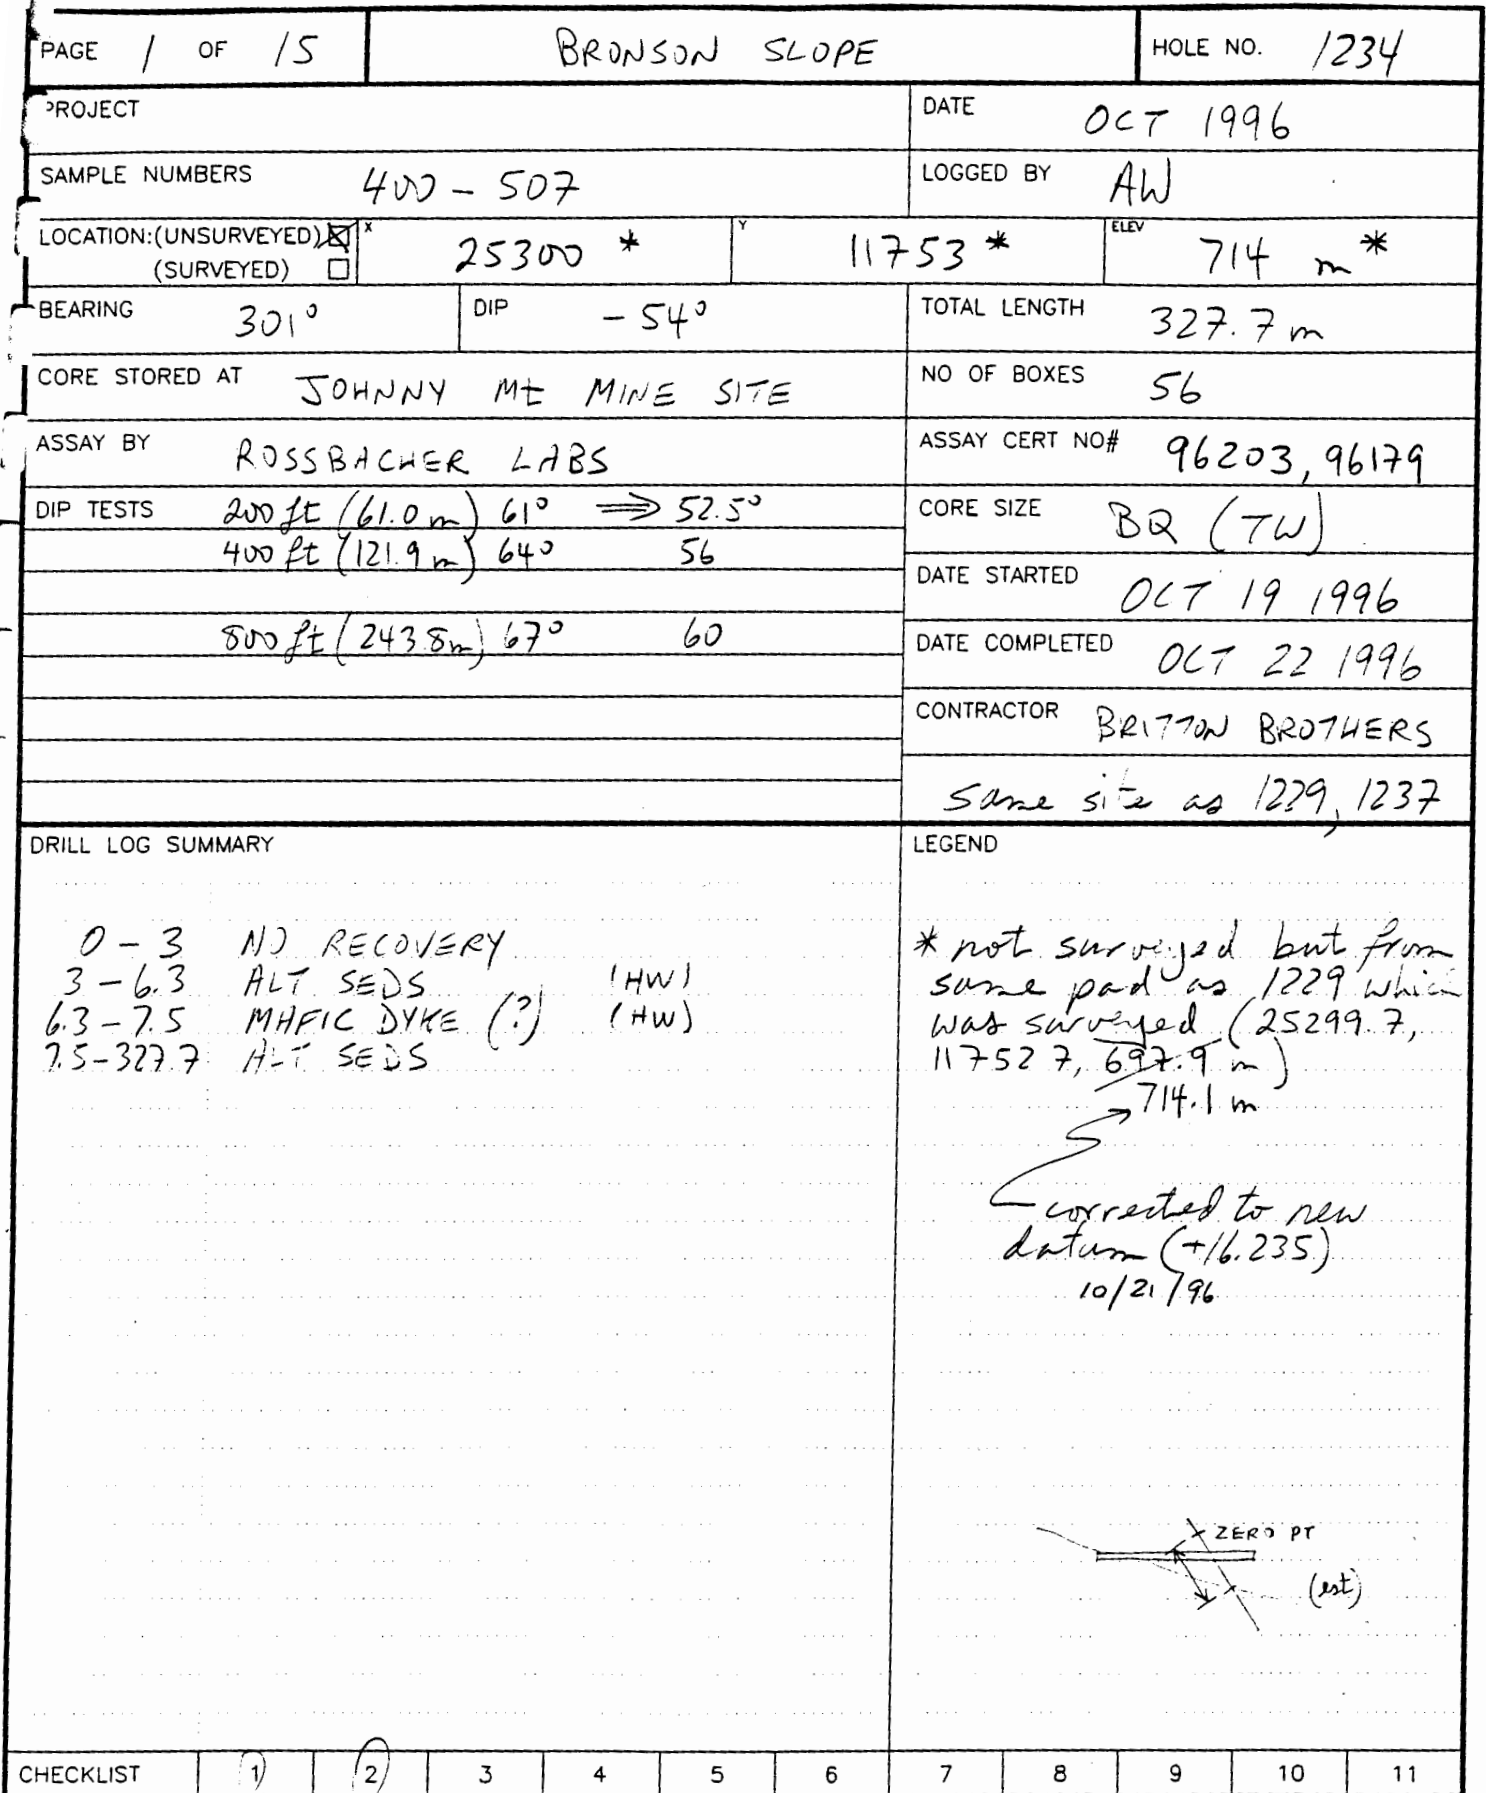 PAGE 1 OF 15 BRONSON SLOPE HOLE NO. 1234
PROJECT DATE OCT 1996
SAMPLE NUMBERS 400 - 507 LOGGED BY AW
LOCATION:(UNSURVEYED) ☒ X 25300 * Y 11753 * ELEV 714 m *
(SURVEYED) ☐
BEARING 301° DIP - 54° TOTAL LENGTH 327.7 m
CORE STORED AT JOHNNY Mt MINE SITE NO OF BOXES 56
ASSAY BY ROSSBACHER LABS ASSAY CERT NO# 96203, 96179
DIP TESTS 200 ft (61.0 m) 61° ⟹ 52.5° CORE SIZE BQ (TW)
400 ft (121.9 m) 64° 56
DATE STARTED OCT 19 1996
800 ft (243.8m) 67° 60 DATE COMPLETED OCT 22 1996
CONTRACTOR BRITTON BROTHERS
same site as 1229, 1237
DRILL LOG SUMMARY
0 - 3 NO RECOVERY
3 - 6.3 ALT SEDS (HW)
6.3 - 7.5 MAFIC DYKE (?) (HW)
7.5 - 327.7 ALT SEDS
LEGEND
* not surveyed but from
same pad as 1229 which
was surveyed (25299.7,
11752 7, 697.9 m)
714.1 m
corrected to new
datum (+16.235)
10/21/96
ZERO PT
(est)
CHECKLIST 1) 2) 3 4 5 6 7 8 9 10 11